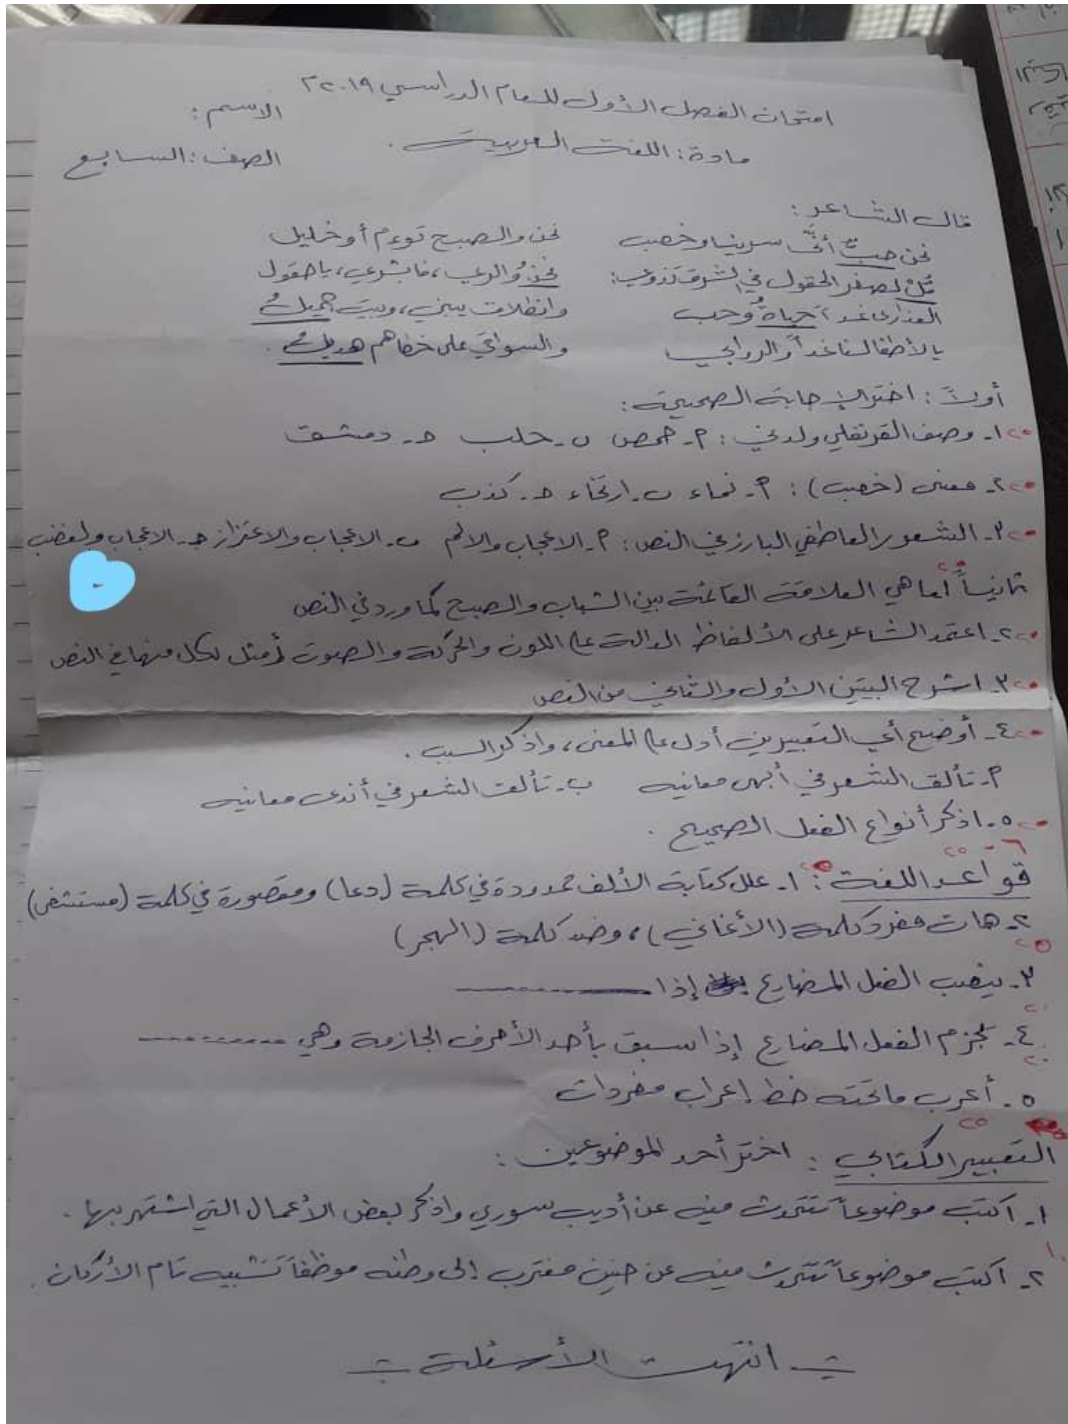 امتحان الفصل الأول للعام الدراسي ٢٠١٩
الاسم:
مادة: اللغة العربية.
الصف: السابع
قال الشاعر:
نحن حبٌّ أنَّى سرينا وخصب نحن والصبح توءم أو خليل
قُلْ لصفر الحقول في الشرق نحنُ والريب، فابشري، يا حقول
العذارى غداً حياةٌ وحب وانطلاقات يبني، وبيت جميلٌ
يالأطفالنا غداً والروابي والسواقي على خطاهم هديلٌ.
أولاً: اختر الإجابة الصحيحة:
١- وصف القرنفلي ولد في: ٢- حمص ب- حلب ح- دمشق
٢- معنى (خصب): ٢- نماء ب- ارتخاء ح- كذب
٣- الشعور العاطفي البارز في النص: ٢- الاعجاب والالم ب- الاعجاب والاعتزاز ح- الاعجاب والغضب
ثانياً ١ما هي العلاقة القائمة بين الشباب والصبح كما ورد في النص
٢- اعتمد الشاعر على الألفاظ الدالة على اللون والحركة والصوت أمثل لكل منها في النص
٣- اشرح البيتين الأول والثاني من النص
٤- أوضح أي التعبيرين أدل على المعنى، واذكر السبب.
٢- تألق الشعر في أبهى معانيه ب- تألق الشعر في أندى معانيه
٥- اذكر أنواع الفعل الصحيح.
قواعد اللغة: ١- علل كتابة الألف ممدودة في كلمة (دعا) ومقصورة في كلمة (مستشفى)
٢- هات مفرد كلمة (الأغاني)، وضد كلمة (الهجر)
٣- ينصب الفعل المضارع إذا ............
٤- يجزم الفعل المضارع إذا سبق بأحد الأحرف الجازمة وهي ............
٥- أعرب ما تحته خط إعراب مفردات
التعبير الكتابي: اختر أحد الموضوعين:
١- اكتب موضوعاً تتحدث فيه عن أديب سوري واذكر بعض الأعمال التي اشتهر بها.
٢- اكتب موضوعاً تتحدث فيه عن حنين مغترب إلى وطنه موظفاً تشبيه تام الأركان.
انتهت الأسئلة